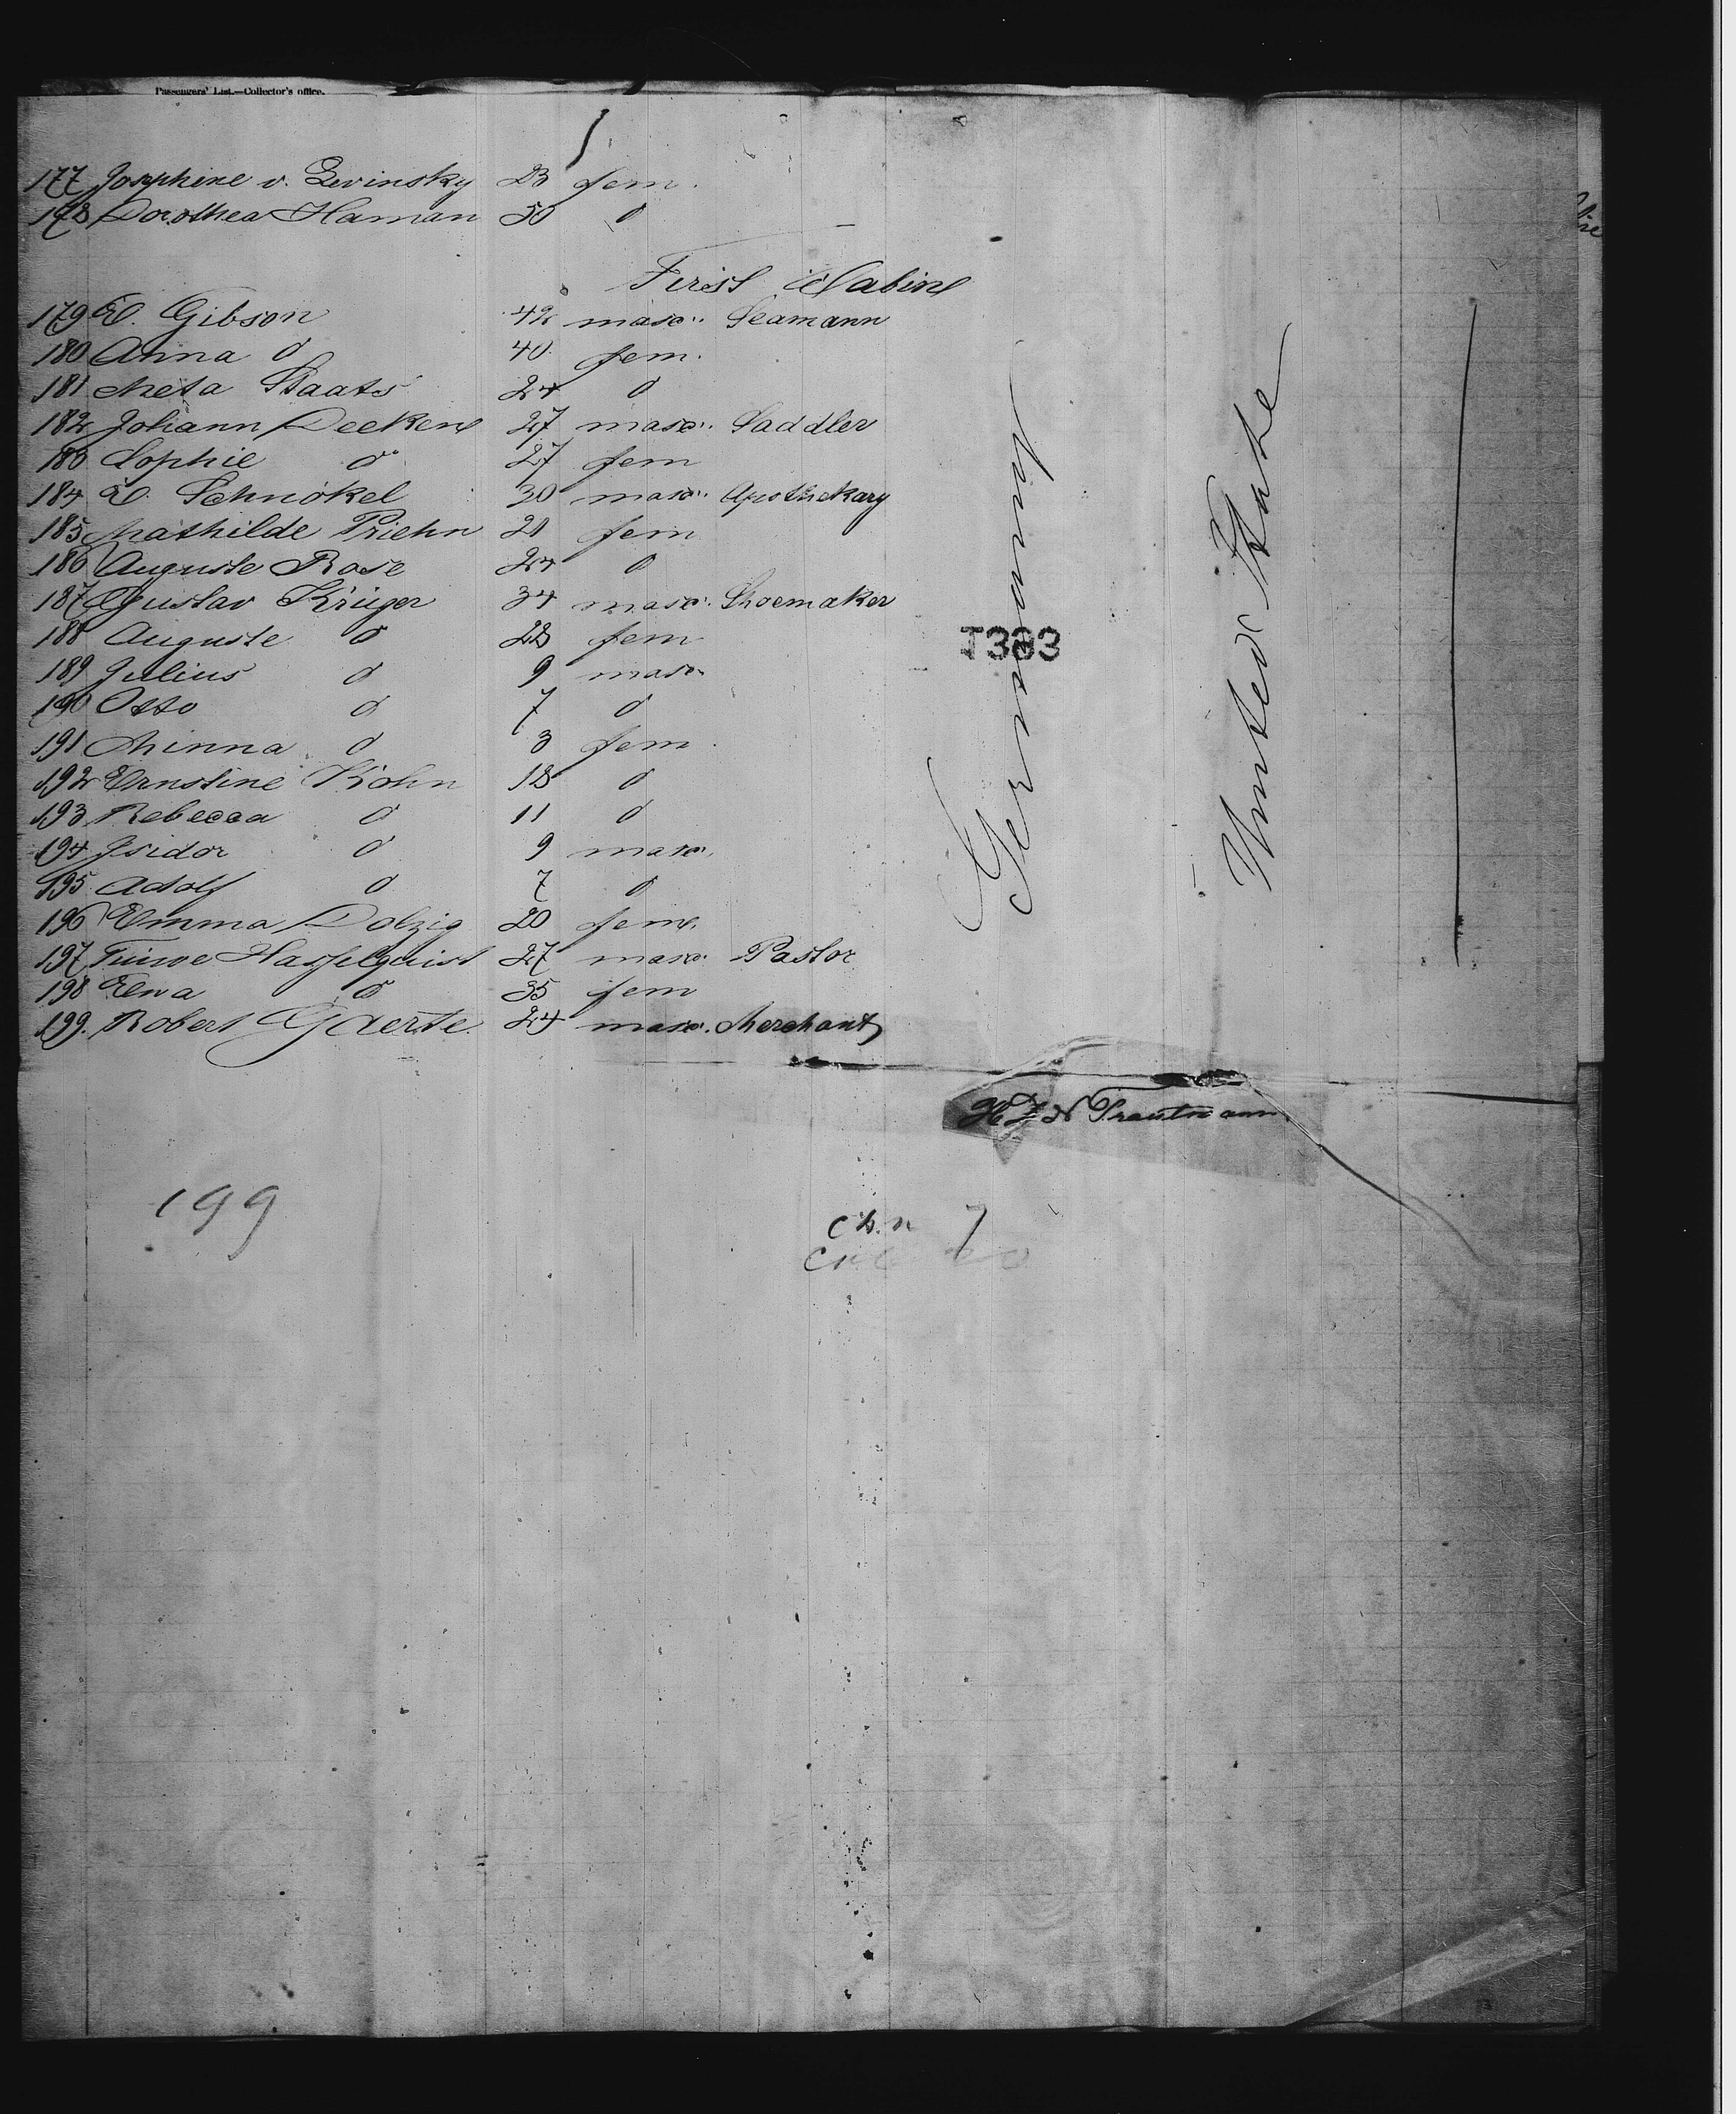 Passengers' List.—Collector's office.
177 Josephine v. Levinsky 23 fem.
178 Dorothea Haman 50 d
First Cabine
179 E. Gibson 42 masc. Seamann
180 Anna d 40 fem.
181 Meta Staats 24 d
182 Johann Deeken 27 masc. Saddler
183 Sophie d 27 fem
184 E. Schnökel 30 masc. Apothekary
185 Mathilde Priehn 21 fem
186 Auguste Rose 24 d
187 Gustav Krüger 34 masc. Shoemaker
188 Auguste d 28 fem
189 Julius d 9 masc.
190 Otto d 7 d
191 Minna d 3 fem.
192 Ernstine Kohn 18 d
193 Rebecca d 11 d
194 Isidor d 9 masc.
195 Adolf d 7 d
196 Emma Dolzig 20 fem.
197 Hasselquist 27 masc. Pastor
198 Ewa d 35 fem
199. Robert Gaerte 24 masc. Merchant
Germany
United State
T383
Trautmann
199
7